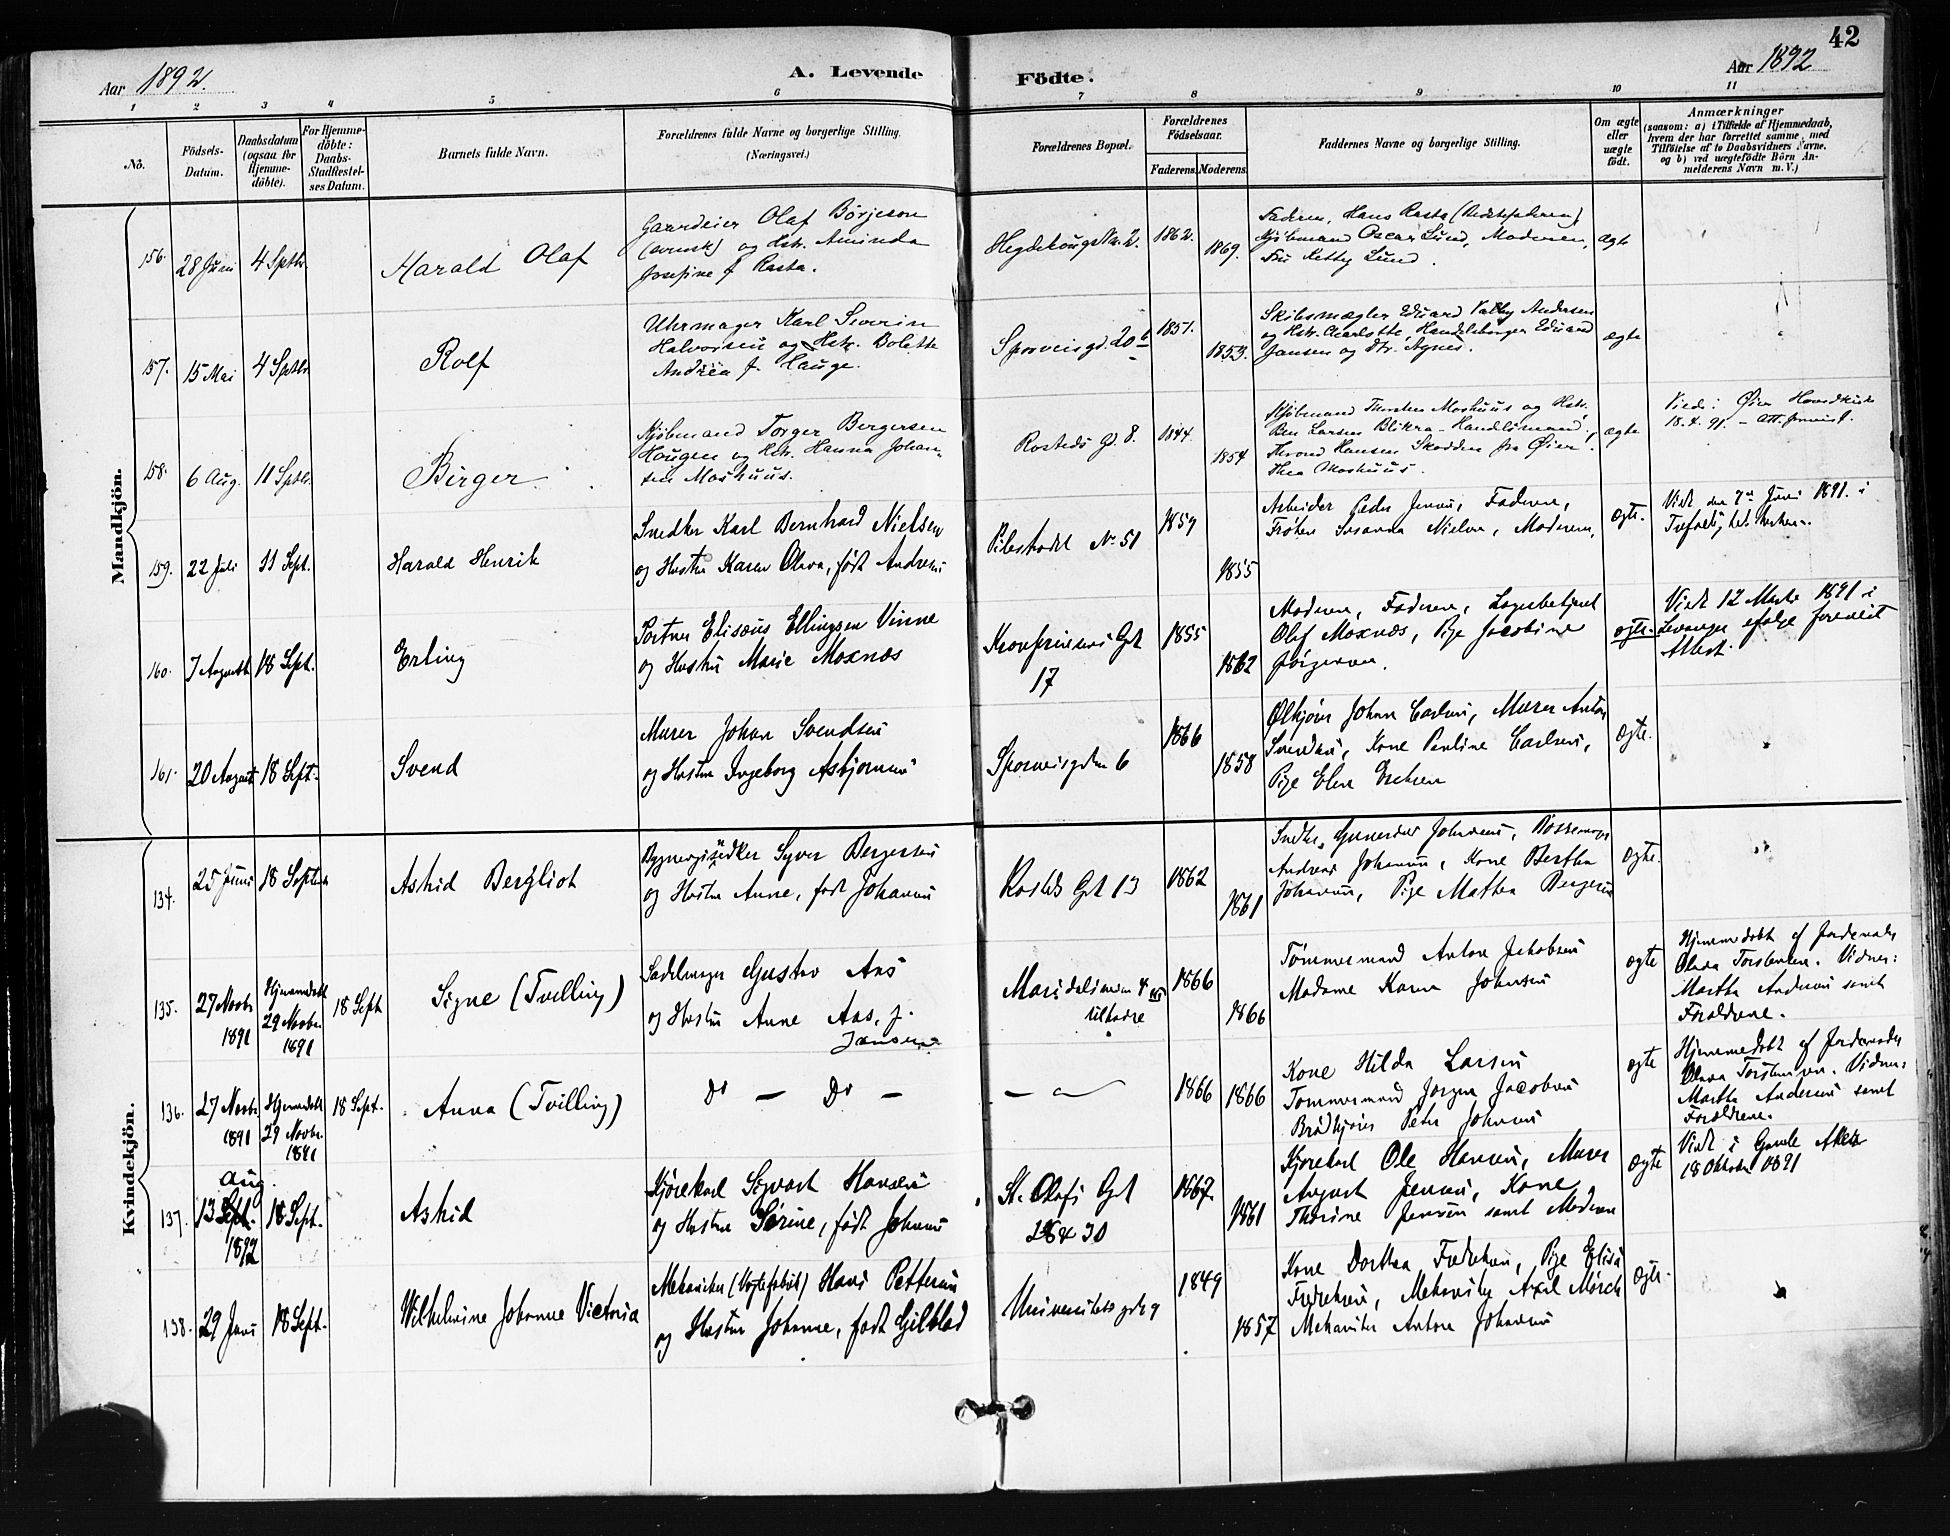 42
Aar 1892.
A. Levende Födte.
Aar 1892
1 2 3 4 5 6 7 8 9 10 11
No.
Födsels-Datum.
Daabsdatum (ogsaa for Hjemme-döbte).
For Hjemme-döbte: Daabs-Stadfæstel-ses Datum.
Barnets fulde Navn.
Forældrenes fulde Navne og borgerlige Stilling.
(Næringsvei.)
Forældrenes Bopæl.
Forældrenes Födselsaar.
Faderens. Moderens.
Faddernes Navne og borgerlige Stilling.
Om ægte eller uægte födt.
Anmærkninger
(saasom: a) i Tilfælde af Hjemmedaab,
hvem der har forrettet samme, med
Tilföielse af to Daabsvidners Navne,
og b) ved uægtefödte Börn An-
melderens Navn m. V.)
Mandkjön.
156. 28 Juni 4 Septbr Harald Olaf
Gaardeier Olaf Börjeson
(svensk) og Hstr. Aminda
Josefine f. Rasta.
1862. 1869.
Faderen, Hans Rasta
Kjøbmand Oscar Lund, Moderen,
Fru Lund.
ægte
157. 15 Mai 4 Septbr Rolf
Uhrmager Karl Severin
Halvorsen og Hstr. Bolette
Andrea f. Hauge.
Sporveisgd. 20
1851. 1853.
Skibsmægler Eduard Andersen
og Hstr. Charlotte, Handelsborger Eduard
Jansen og Dtr. Agnes.
ægte
158. 6 Aug. 11 Septbr. Birger
Kjøbmand Torger Bergersen
Haugen og Hstr. Hanna Johan-
sen Moshuus.
Rosteds Gd. 8.
1844. 1854
Kjøbmand Thorsten Moshuus og Hstr.
Larsen Blikra - Handlsmand,
Thrond Hansen Skodden fra Øier.
Thea Moshuus.
ægte
Viede: Øier Hovedkirke
18.4.91. - att. forevist.
159. 22 Juli 11 Sept. Harald Henrik
Snedker Karl Bernhard Nielsen
og Hustru Karen Olava, født Andresen
Pilestrædet No 51
1859 1855
Arbeider Peder Jensen, Faderen,
Frøken Susanna Nielsen, Moderen,
ægte.
Viet den 7de Juni 1891. i
Trefoldighetskirken.
160. 7 August 18 Sept. Erling
Portner Elisæus Ellingsen Vinne
og Hustru Marie Moxnæs
Kronprinsens Gd 17
1855 1862
Moderen, Faderen, Lagerbetjent
Olaf Moxnæs, Pige Jacobine
Jørgensen.
ægte.
Viet 12 Marts 1891 i
Levanger ifølge forevist
Attest.
161. 20 August 18 Sept. Svend
Murer Johan Svendsen
og Hustru Ingeborg Asbjørnsen
Sporveisgaden 6
1866 1858
Ølkjører Johan Carlsen, Murer Anton
Svendsen, Kone Pauline Carlsen,
Pige Elen Erichsen
ægte.
Kvindekjön.
134. 25 Juni 18 Septbr Astrid Bergliot
Bygningssnedker Syver Bergersen
og Hustru Anne, født Johansen
Rosteds Gd 13
1862 1861
Snedker Gunerius Johansen,
Andreas Johansen, Kone Bertha
Johansen, Pige Mathea Bergersen
ægte.
135. 27 Novbr 1891 Hjemmedøbt 29 Novbr. 1891 18 Sept Signe (Tvilling)
Sadelmager Gustav Aas
og Hustru Anne Aas, f.
Jansen
Maridalsveien 4
1866 1866
Tømmermand Anton Jakobsen
Madame Karen Johnsen
ægte
Hjemmedøbt af Jordemoder
Olava Torstensen. Vidner:
Martha Andersen samt
Forældrene.
136. 27 Novbr 1891 Hjemmedøbt 29 Novbr. 1891 18 Sept. Anna (Tvilling)
Do — Do —
1866 1866
Kone Hilda Larsen
Tømmermand Jørgen Jacobsen
Brødkjører Peter Johnsen
ægte
Hjemmedøbt af Jordemoder
Olava Torstensen. Vidner:
Martha Andersen samt
Forældrene.
137. 13 Sept. Aug. 1892 18 Sept. Astrid
Kjørekarl Sigvart Hansen
og Hustru Sørine, født Johnsen
St. Olafs Gd
28 & 30
1867. 1861
Kjørekarl Ole Hansen, Murer
August Jensen, Kone
Thorine Jensen samt Moderen
ægte
Viet i Gamle Aker
18 Oktober 1891
138. 29 Juni 18 Sept. Wilhelmine Johanne Victoria
Mekaniker (Vægtfabrik) Hans Pettersen
og Hustru Johanne, født Gilblad
Universitetsgd 9
1849 1857
Kone Dorthea Fredriksen, Pige Elisa
Fredriksen, Mekaniker Axel Mörch
Mekaniker Anton Johansen
ægte.